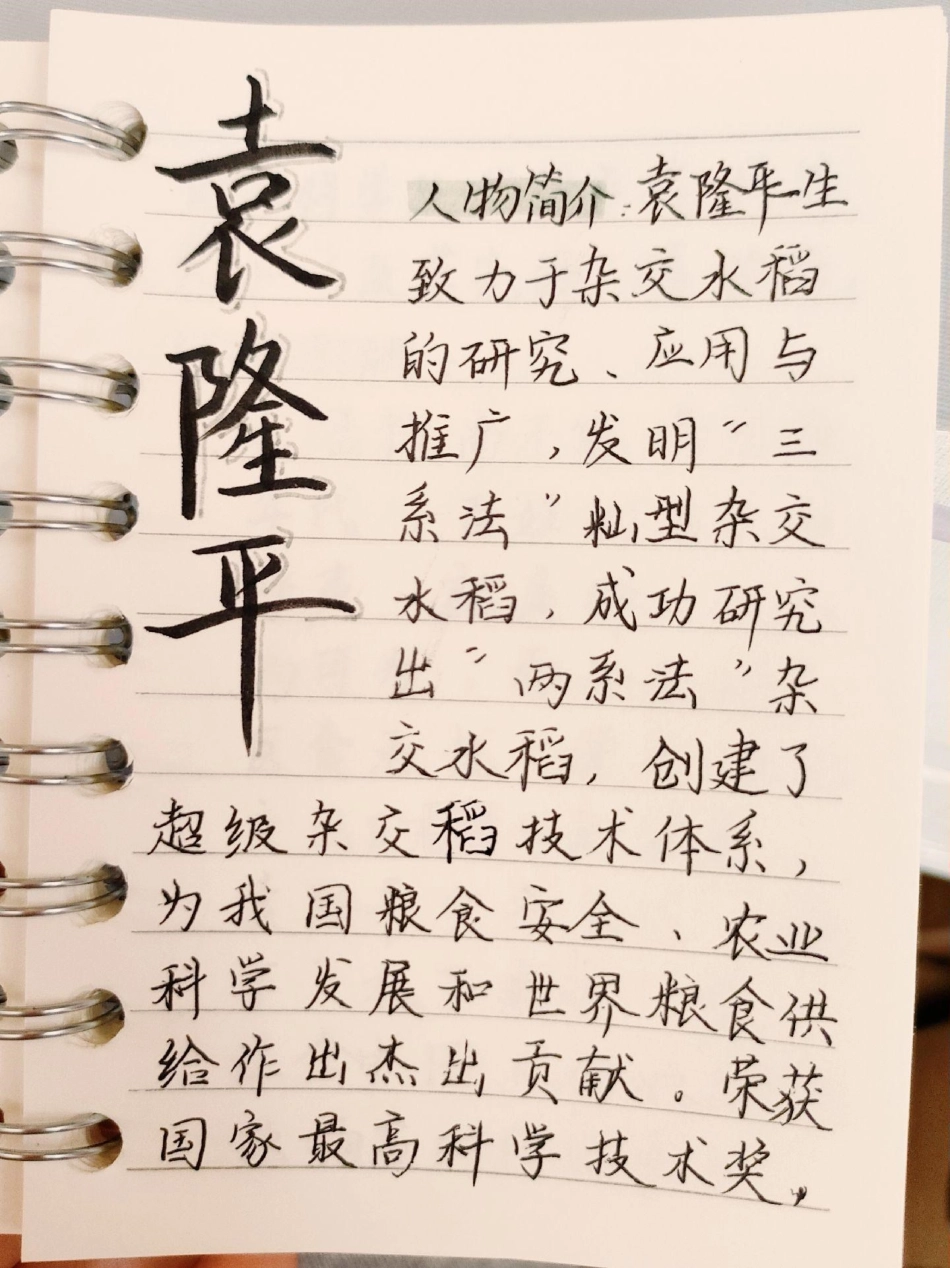 袁隆平
人物简介:袁隆平一生
致力于杂交水稻
的研究、应用与
推广,发明“三
系法”籼型杂交
水稻,成功研究
出“两系法”杂
交水稻,创建了
超级杂交稻技术体系,
为我国粮食安全、农业
科学发展和世界粮食供
给作出杰出贡献。荣获
国家最高科学技术奖。